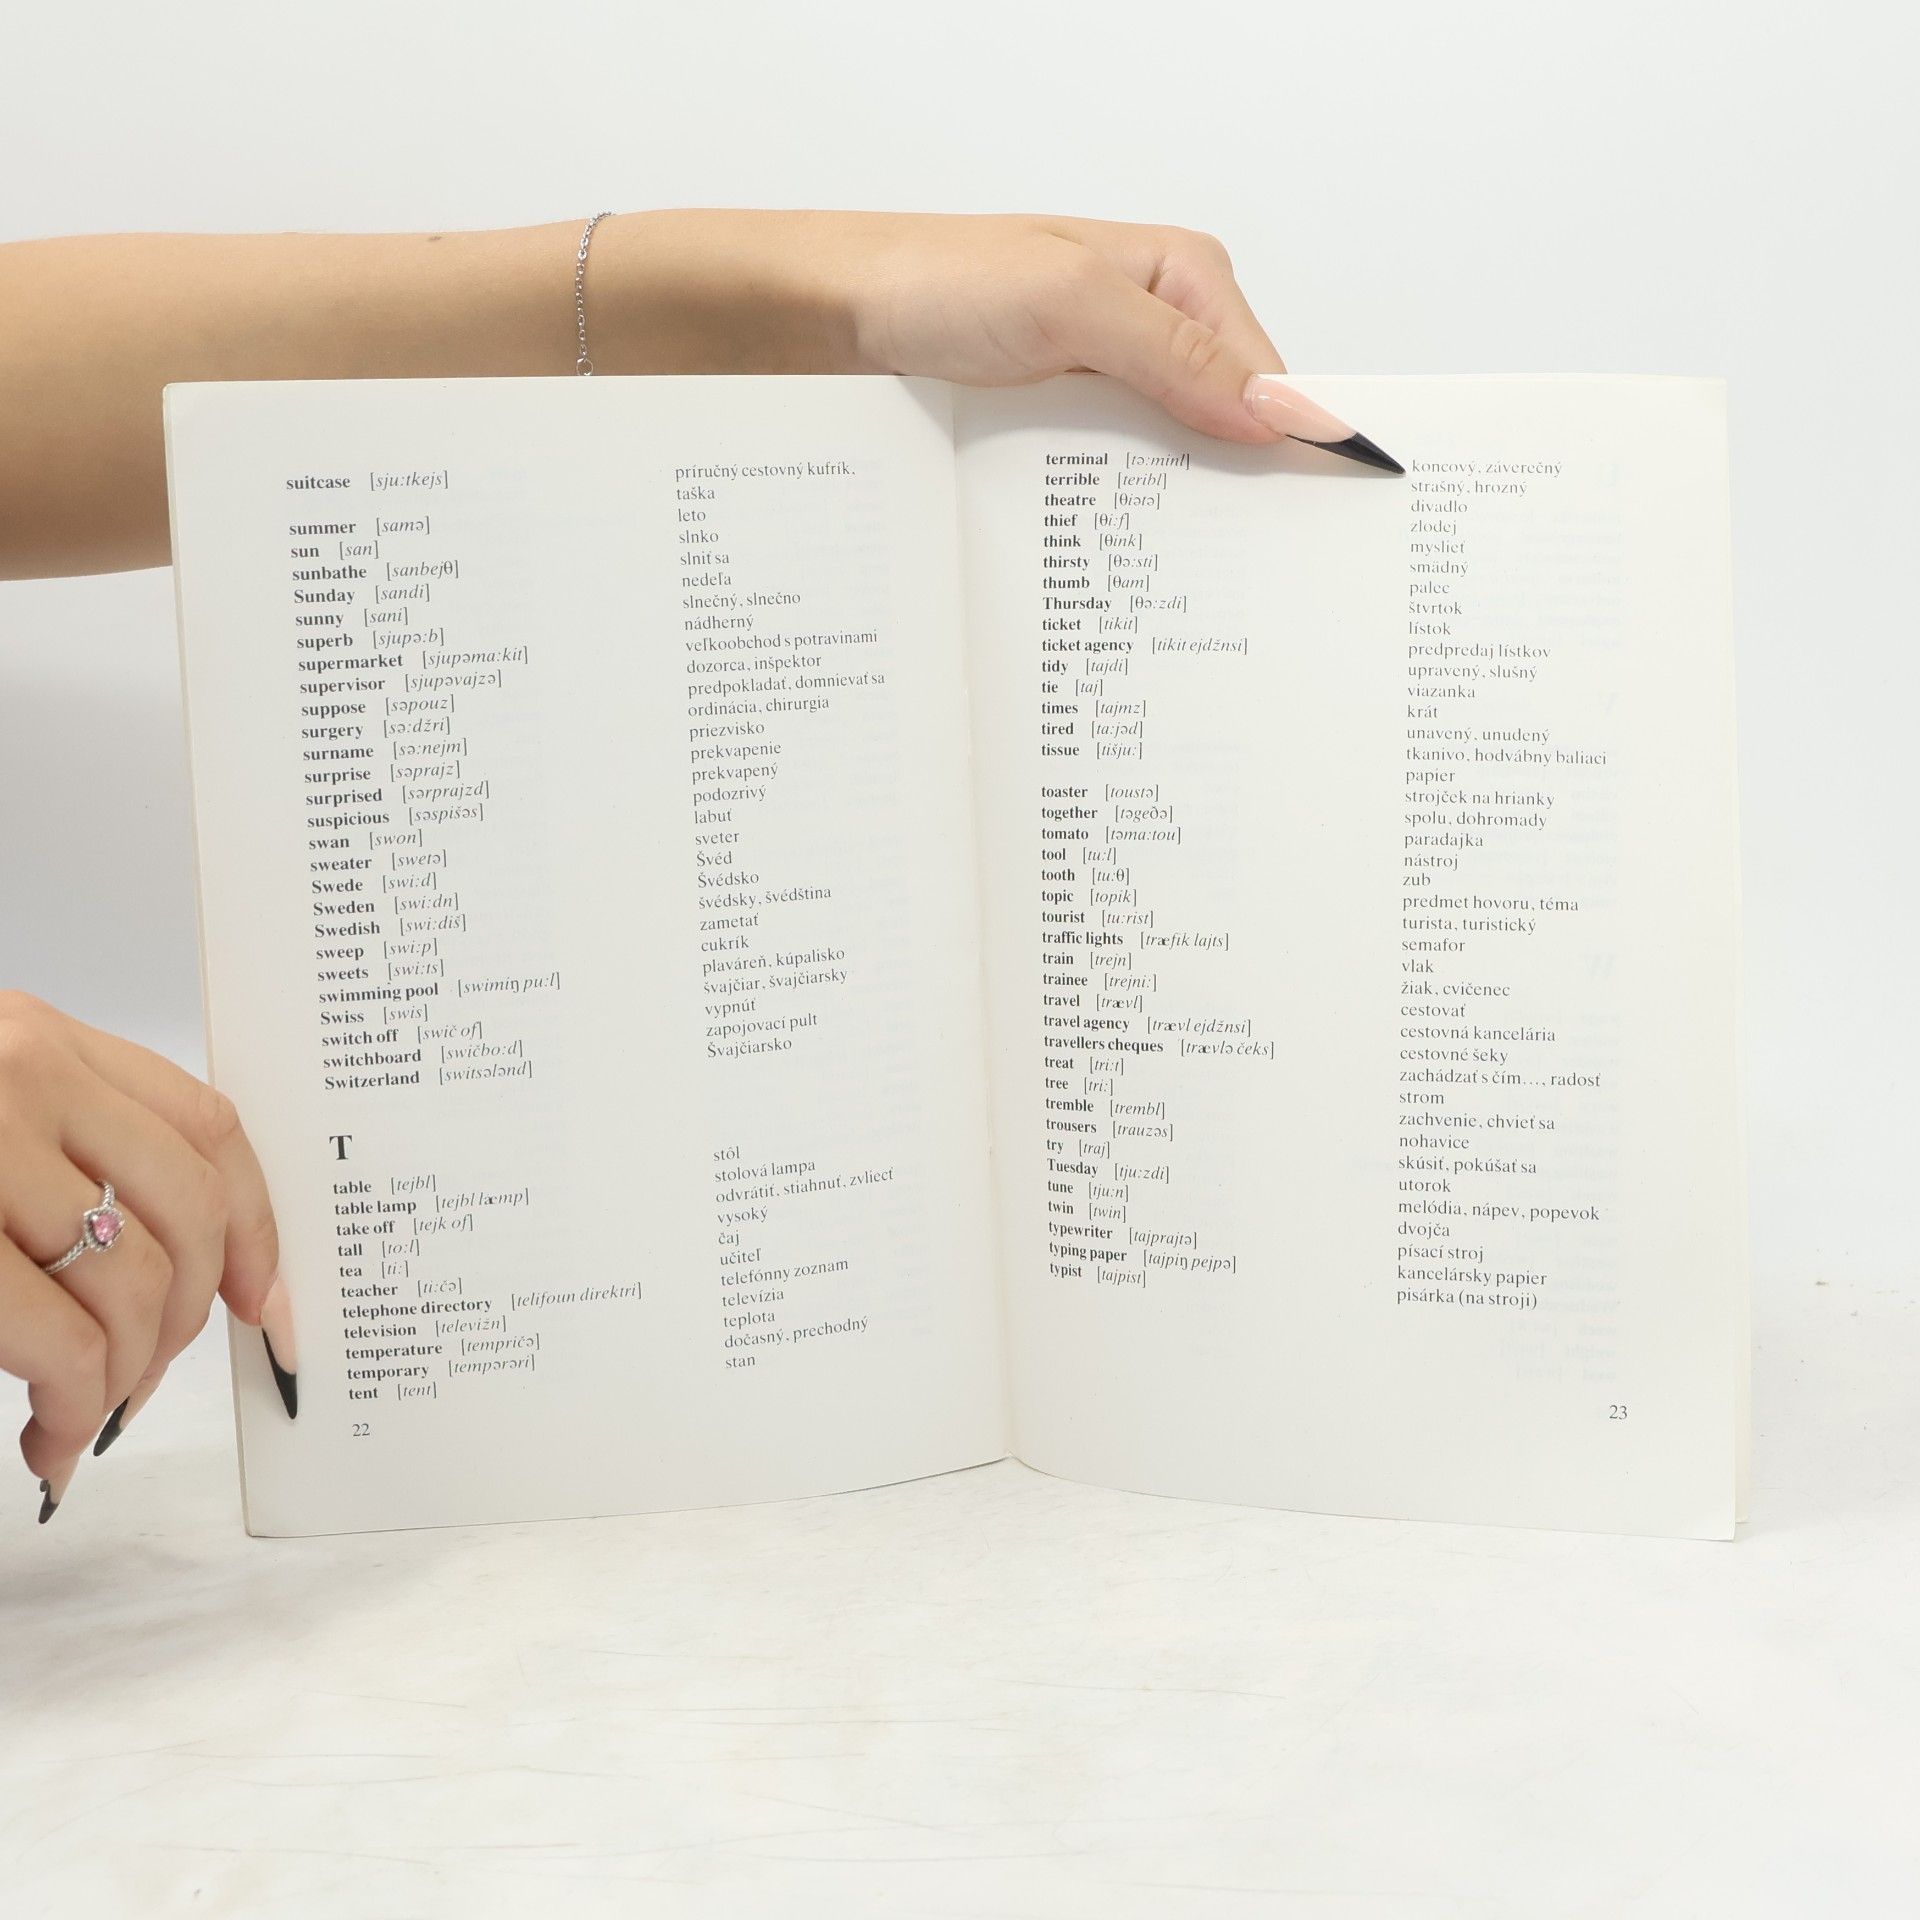 suitcase [sju:tkejs] príručný cestovný kufrík,
taška
summer [samə] leto
sun [san] slnko
sunbathe [sanbejθ] slniť sa
Sunday [sandi] nedeľa
sunny [sani] slnečný, slnečno
superb [sjupə:b] nádherný
supermarket [sjupəma:kit] veľkoobchod s potravinami
supervisor [sjupəvajzə] dozorca, inšpektor
suppose [səpouz] predpokladať, domnievať sa
surgery [sə:džri] ordinácia, chirurgia
surname [sə:nejm] priezvisko
surprise [səprajz] prekvapenie
surprised [sərprajzd] prekvapený
suspicious [səspišəs] podozrivý
swan [swon] labuť
sweater [swetə] sveter
Swede [swi:d] Švéd
Sweden [swi:dn] Švédsko
Swedish [swi:diš] švédsky, švédština
sweep [swi:p] zametať
sweets [swi:ts] cukrík
swimming pool [swimiŋ pu:l] plaváreň, kúpalisko
Swiss [swis] švajčiar, švajčiarsky
switch off [swič of] vypnúť
switchboard [swičbo:d] zapojovací pult
Switzerland [switsələnd] Švajčiarsko
T
table [tejbl] stôl
table lamp [tejbl læmp] stolová lampa
take off [tejk of] odvrátiť, stiahnuť, zvliecť
tall [to:l] vysoký
tea [ti:] čaj
teacher [ti:čə] učiteľ
telephone directory [telifoun direktri] telefónny zoznam
television [televižn] televízia
temperature [tempričə] teplota
temporary [tempərəri] dočasný, prechodný
tent [tent] stan
22
terminal [tə:minl] koncový, záverečný
terrible [teribl] strašný, hrozný
theatre [θiətə] divadlo
thief [θi:f] zlodej
think [θink] myslieť
thirsty [θə:sti] smädný
thumb [θam] palec
Thursday [θə:zdi] štvrtok
ticket [tikit] lístok
ticket agency [tikit ejdžnsi] predpredaj lístkov
tidy [tajdi] upravený, slušný
tie [taj] viazanka
times [tajmz] krát
tired [ta:jəd] unavený, unudený
tissue [tišju:] tkanivo, hodvábny baliaci
papier
toaster [toustə] strojček na hrianky
together [təgeðə] spolu, dohromady
tomato [təma:tou] paradajka
tool [tu:l] nástroj
tooth [tu:θ] zub
topic [topik] predmet hovoru, téma
tourist [tu:rist] turista, turistický
traffic lights [træfik lajts] semafor
train [trejn] vlak
trainee [trejni:] žiak, cvičenec
travel [trævl] cestovať
travel agency [trævl ejdžnsi] cestovná kancelária
travellers cheques [trævlə čeks] cestovné šeky
treat [tri:t] zachádzať s čím..., radosť
tree [tri:] strom
tremble [trembl] zachvenie, chvieť sa
trousers [trauzəs] nohavice
try [traj] skúsiť, pokúšať sa
Tuesday [tju:zdi] utorok
tune [tju:n] melódia, nápev, popevok
twin [twin] dvojča
typewriter [tajprajtə] písací stroj
typing paper [tajpiŋ pejpə] kancelársky papier
typist [tajpist] pisárka (na stroji)
23